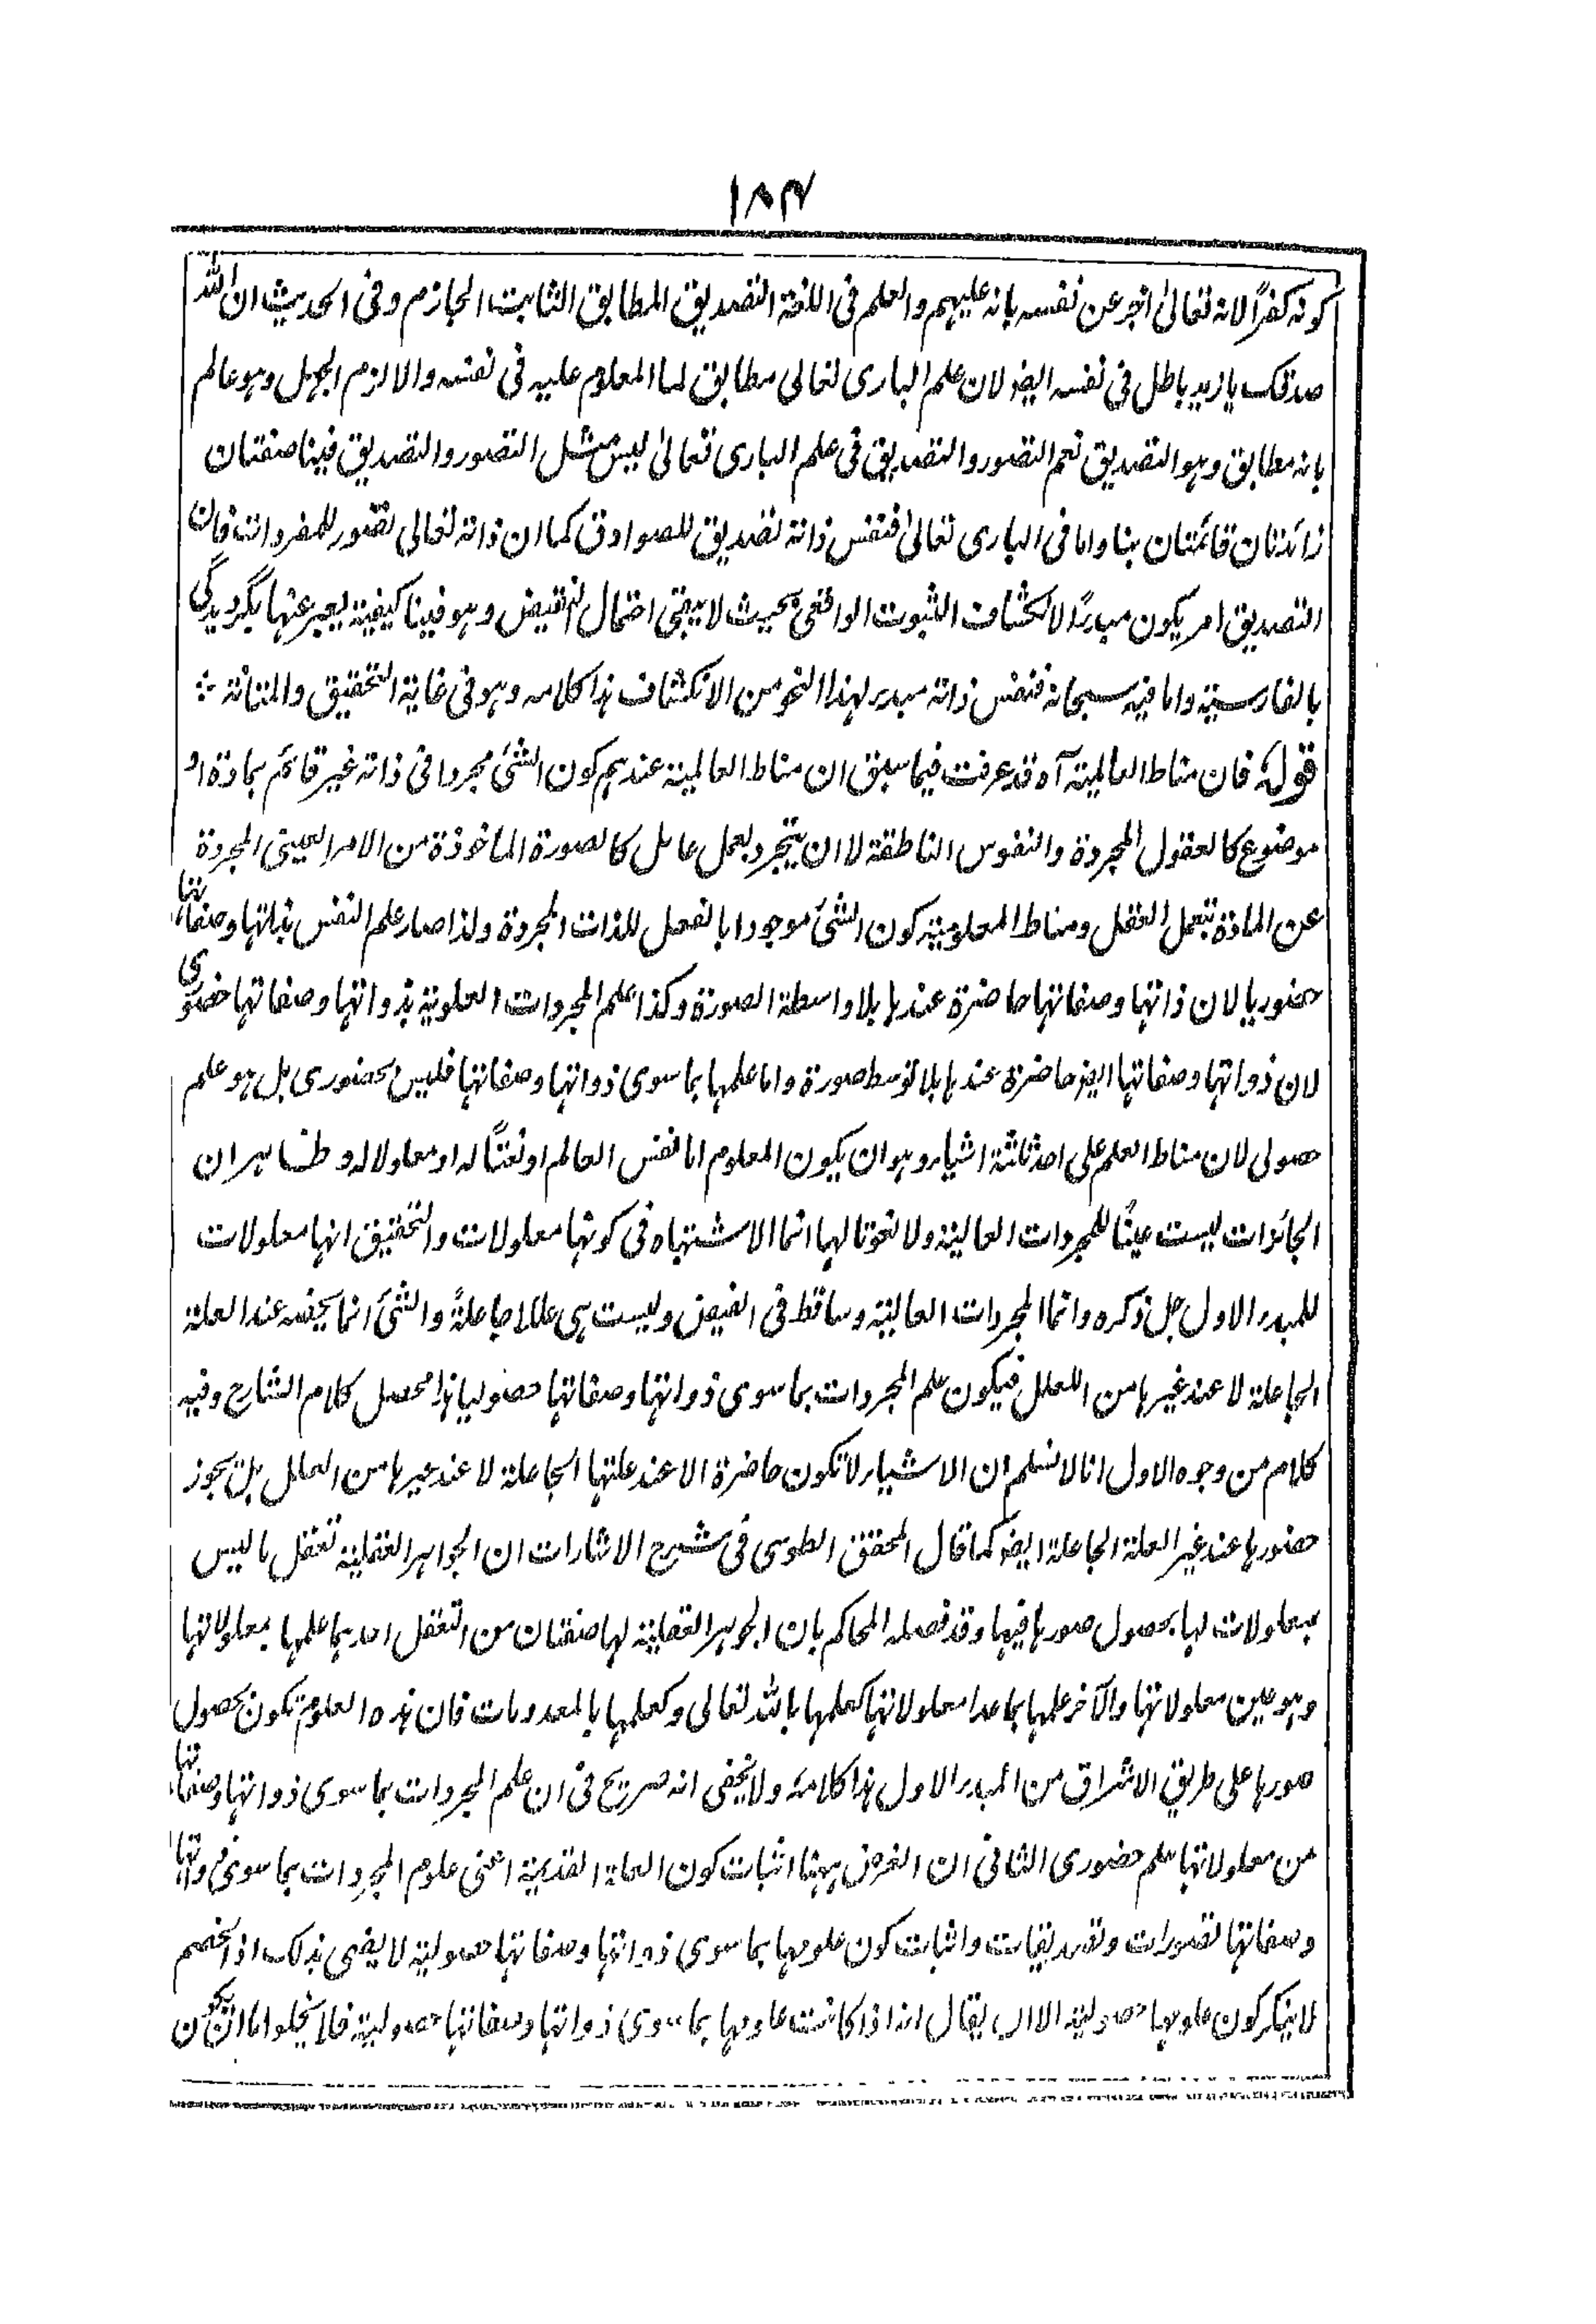 ١٨٤
كونه كفرًا لانه تعالىٰ اخبر عن نفسه بانه عليهم والعلم فى اللغة التصديق المطابق الثابت الجازم وفى الحديث ان الله
صدقك يا زيد باطل فى نفسه ايضو لان علم البارى تعالى مطابق لما المعلوم عليه فى نفسه والا لزم الجهل وهو عالم
بانه مطابق وهو التصديق نعم التصور والتصديق فى علم البارى تعالىٰ ليس مثل التصور والتصديق فينا صفتان
زائدتان قائمتان بنا واما فى البارى تعالىٰ فنفس ذاته تصديق للصوادق كما ان ذاته تعالى تصور للمفردات فان
التصديق امر يكون مبدءًا لانكشاف الثبوت الواقعى بحيث لا يبقى احتمال النقيض وهو فينا كيفية يعبر عنها بگرويدگى
بالفارسية واما فيه سبحانه فنفس ذاته مبدء لهذا النحو من الانكشاف هذا كلامه وهو فى غاية التحقيق والمتانة
قوله فان مناط العالمية آه قد عرفت فيما سبق ان مناط العالمية عندهم كون الشئ مجردا فى ذاته غير قائم بمادة او
موضوع كالعقول المجردة والنفوس الناطقة لا ان يتجرد بعمل عامل كالصورة الماخوذة من الامر العينى المجردة
عن المادة بتعمل العقل ومناط المعلومية كون الشئ موجودا بالفعل للذات المجردة ولذا صار علم النفس بذاتها وصفاتها
حضوريا لان ذاتها وصفاتها حاضرة عندها بلا واسطة الصورة وكذا علم المجردات العلوية بذواتها وصفاتها حضورى
لان ذواتها وصفاتها ايضو حاضرة عندها بلا توسط صورة واما علمها بما سوى ذواتها وصفاتها فليس بحضورى بل هو علم
حصولى لان مناط العلم على احد ثلثة اشياء وهو ان يكون المعلوم اما نفس العالم او نعتًا له او معلولا له وظاهر ان
الجائزات ليست عينًا للمجردات العالية ولا نعوتا لها انما الاشتباه فى كونها معلولات والتحقيق انها معلولات
للمبدء الاول جل ذكره وانما المجردات العالية وسائط فى الفيض وليست هى عللا جاعلةً والشئ انما يحضر عند العلة
الجاعلة لا عند غيرها من العلل فيكون علم المجردات بما سوى ذواتها وصفاتها حصوليا هذا محصل كلام الشارح وفيه
كلام من وجوه الاول انا لا نسلم ان الاشياء لا تكون حاضرة الا عند علتها الجاعلة لا عند غيرها من العلل بل يجوز
حضورها عند غير العلة الجاعلة ايضو كما قال المحقق الطوسى فى شرح الاشارات ان الجواهر العقلية تعقل ما ليس
بمعلولات لها بحصول صورها فيها وقد فصله المحاكم بان الجواهر العقلية لها صنفان من التعقل احدهما علمها بمعلولاتها
وهو عين معلولاتها والآخر علمها بما عدا معلولاتها كعلمها بالله تعالى وكعلمها بالمعدومات فان هذه العلوم تكون بحصول
صورها على طريق الاشراق من المبدء الاول هذا كلامه ولا يخفى انه صريح فى ان علم المجردات بما سوى ذواتها وصفاتها
من معلولاتها علم حضورى الثانى ان الغرض ههنا اثبات كون العلة القديمة اعنى علوم المجردات بما سوى ذواتها
وصفاتها تصورات وتصديقات واثبات كون علومها بما سوى ذواتها وصفاتها حصولية لا يفى بذلك اذ الخصم
لا ينكر كون علومها حصولية الا ان يقال انه اذا كانت علومها بما سوى ذواتها وصفاتها حصولية فلا يخلو اما ان يكون